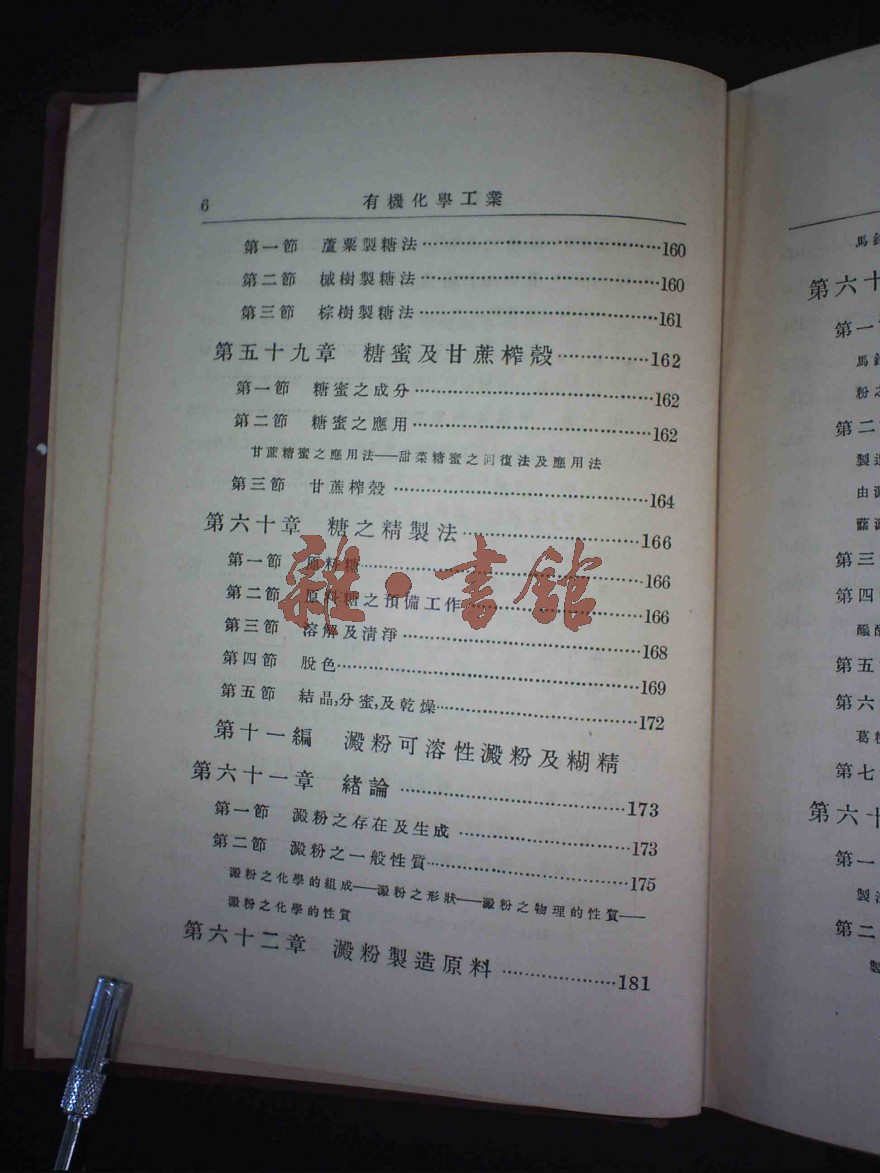 6 有機化學工業
第一節 蘆粟製糖法……160
第二節 械樹製糖法……160
第三節 棕樹製糖法……161
第五十九章 糖蜜及甘蔗榨殼……162
第一節 糖蜜之成分……162
第二節 糖蜜之應用……162
甘蔗糖蜜之應用法——甜菜糖蜜之回復法及應用法
第三節 甘蔗榨殼……164
第六十章 糖之精製法……166
第一節 原料糖……166
第二節 原料糖之預備工作……166
第三節 溶解及清淨……168
第四節 脫色……169
第五節 結晶,分蜜,及乾燥……172
第十一編 澱粉可溶性澱粉及糊精
第六十一章 緒論……173
第一節 澱粉之存在及生成……173
第二節 澱粉之一般性質……175
澱粉之化學的組成——澱粉之形狀——澱粉之物理的性質——
澱粉之化學的性質
第六十二章 澱粉製造原料……181
雜·書館
第六十
第一
粉之
第二
製造
第三
第四
第五
第六
第七
第六十
第一
第二